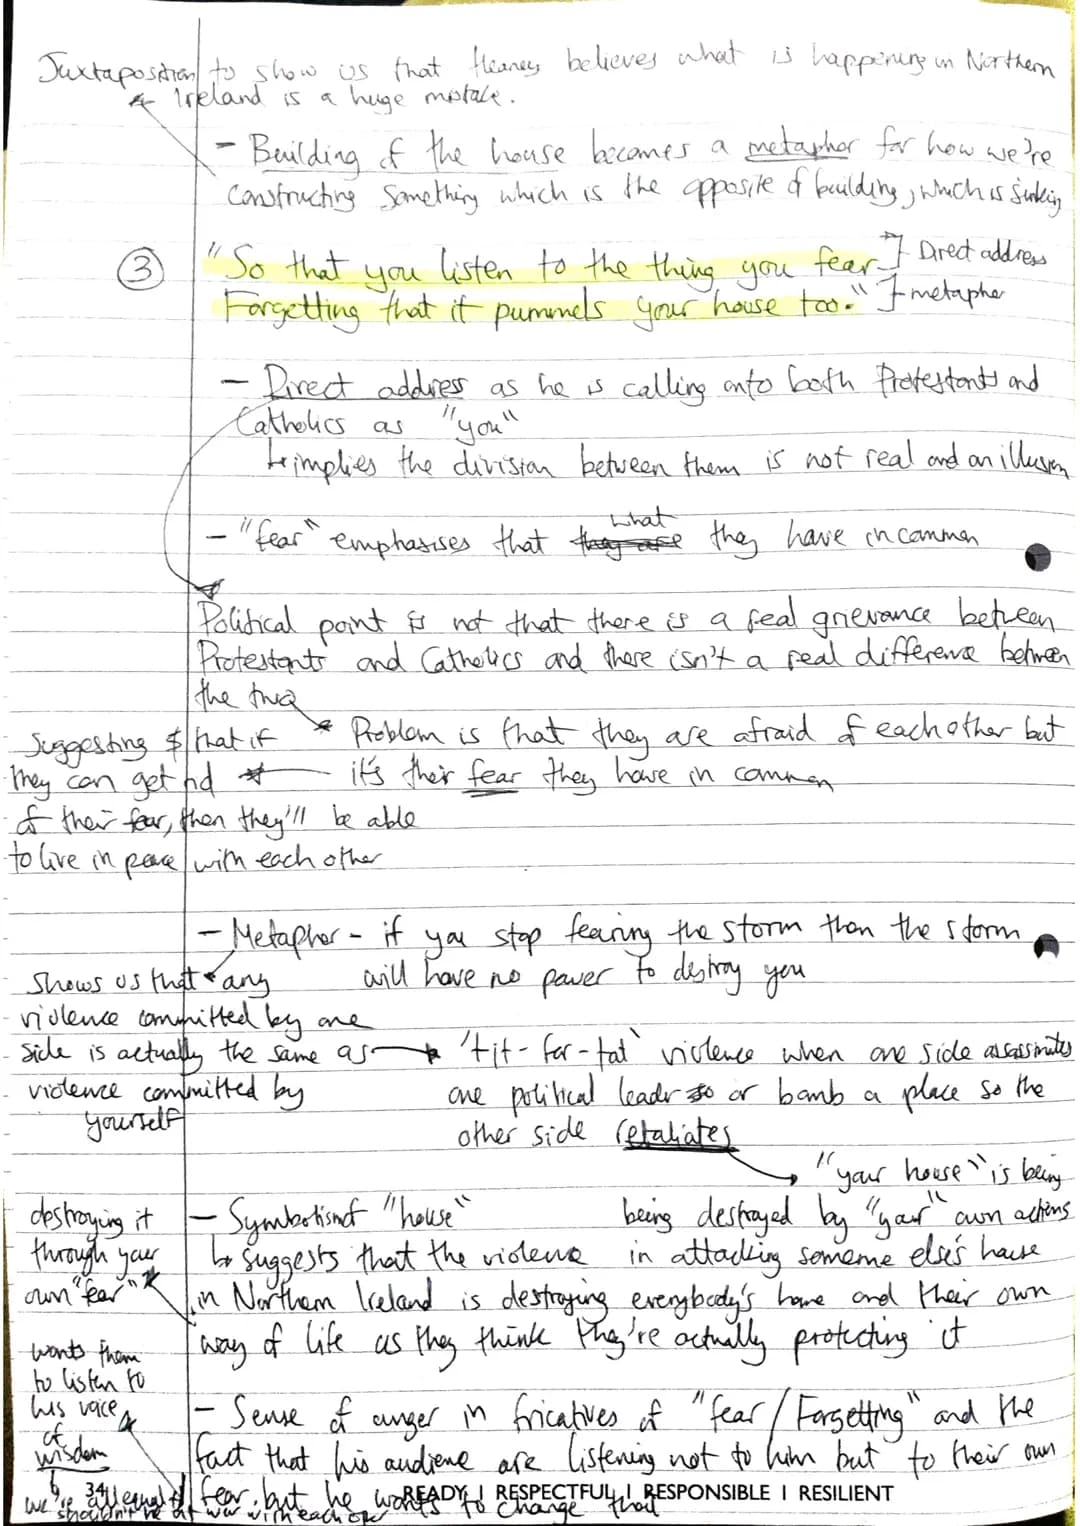 Juxtaposition to show us that Heaney believes what is happening in Northern
Ireland is a huge mistake.
- Building of the house becomes a metaphor for how we're
constructing something which is the opposite of building, which is sinking
③ "So that you listen to the thing you fear
Forgetting that it pummels your house too."
Direct address
metaphor
- Direct address as he is calling onto both Protestants and
Catholics as "you"
↳ implies the division between them is not real and an illusion
- "fear" emphasises that they are what they have in common
Political point is not that there is a real grievance between
Protestants and Catholics and there isn't a real difference between
the two
* Problem is that they are afraid of each other but
it's their fear they have in common
Suggesting that if
they can get rid
of their fear, then they'll be able
to live in peace with each other
- Metaphor - if you stop fearing the storm then the storm
will have no power to destroy you
Shows us that any
violence committed by one
side is actually the same as
violence committed by
yourself
'tit-for-tat' violence when one side assassinates
one political leader so or bomb a place so the
other side retaliates
"your house" is being
being destroyed by "your" own actions
in attacking someone else's house
- Symbolism of "house"
↳ suggests that the violence
in Northern Ireland is destroying everybody's home and their own
way of life as they think they're actually protecting it
destroying it
through your
own "fear"
- Sense of anger in fricatives of "fear/Forgetting" and the
fact that his audience are listening not to him but to their own
fear, but he wants to change that
wants them
to listen to
his voice
of
wisdom
we're all equal
shouldn't be at war with each other
34
READY | RESPECTFUL | RESPONSIBLE | RESILIENT